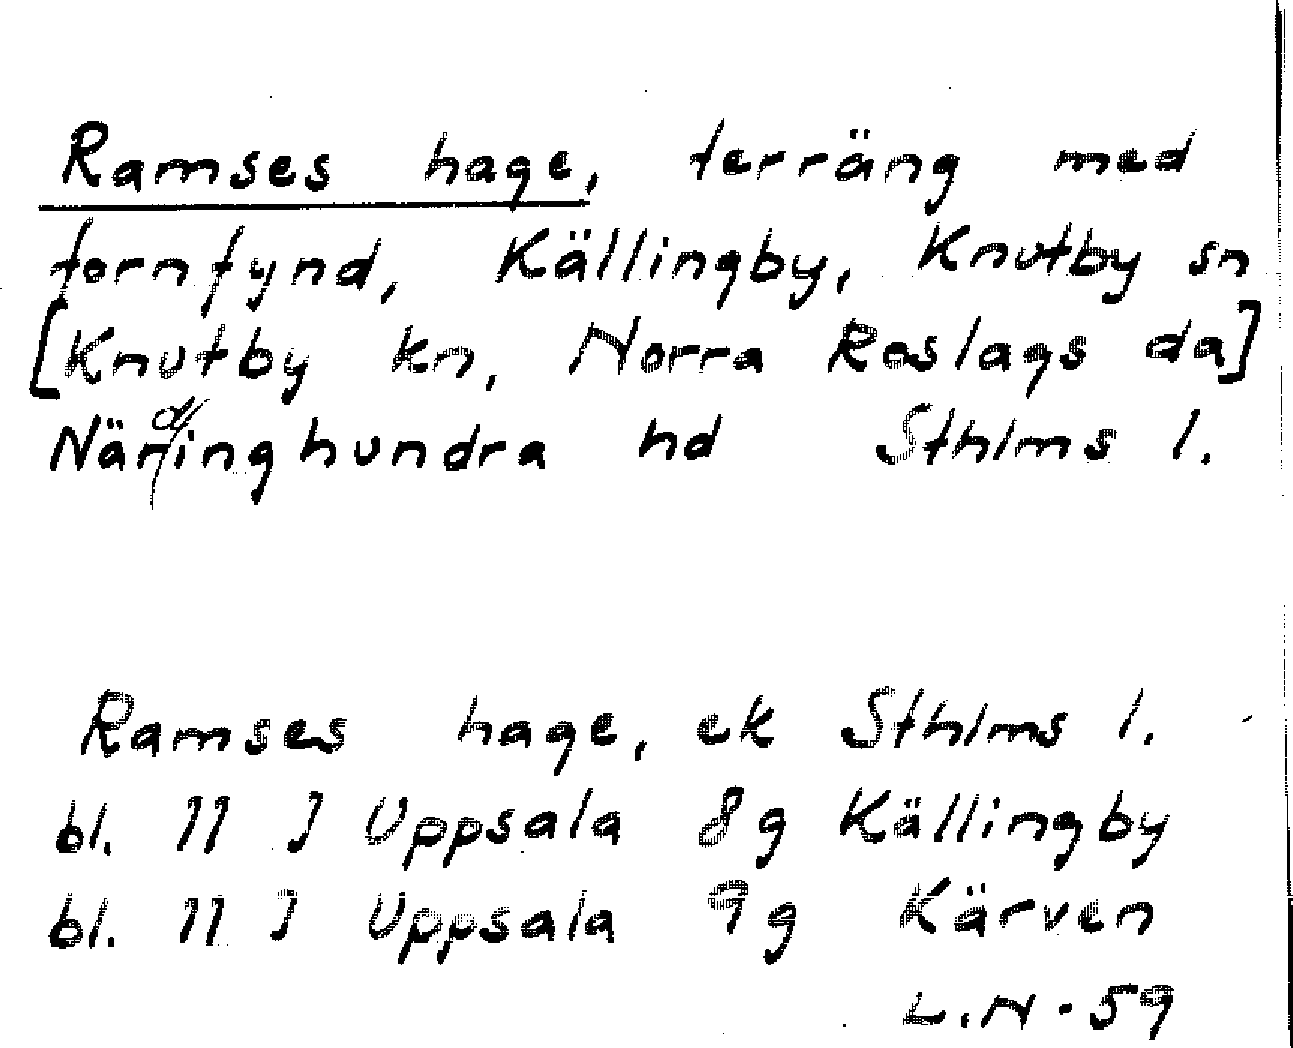 Ramses hage, terräng med
fornfynd, Källingby, Knutby sn
[Knutby kn, Norra Roslags da]
Närdinghundra hd Sthlms l.
Ramses hage, ek Sthlms l.
bl. 11 J Uppsala 8g Källingby
bl. 11 J Uppsala 9g Kärven
L.N. 59